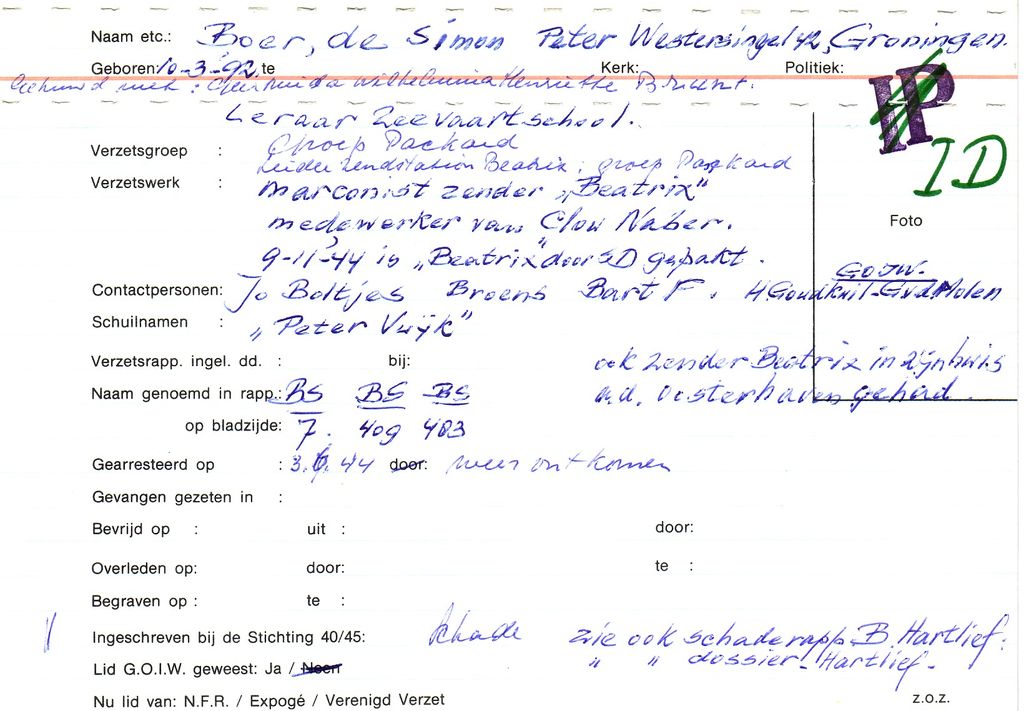 Naam etc.: Boer, de Simon Peter Westersingel 42, Groningen.
Geboren: 10-3-92. te Kerk: Politiek:
Gehuwd met: Geertruida Wilhelmina Henriette Brunt.
IP
ID
Leraar Zeevaartschool.
Verzetsgroep : Groep Packard
Leider zendstation Beatrix; groep Packard
Verzetswerk : Marconist zender „Beatrix"
medewerker van Clou Naber.
Foto
9-11-'44 is „Beatrix" door SD gepakt.
G.O.I.W.
Contactpersonen: Jo Boltjes Broens Bart F. H Goudkuil - GvdMolen
Schuilnamen : „Peter Vuyk"
Verzetsrapp. ingel. dd. : bij: ook zender Beatrix in zijn huis
Naam genoemd in rapp.: BS BS BS a.d. Oosterhaven gehad.
op bladzijde: 7. 409 403
Gearresteerd op : 3.6.44 door: weer ontkomen
Gevangen gezeten in :
Bevrijd op : uit : door:
Overleden op: door: te :
Begraven op : te :
Ingeschreven bij de Stichting 40/45: schade zie ook schaderapp B. Hartlief.
Lid G.O.I.W. geweest: Ja / Neen „ „ dossier-Hartlief.
Nu lid van: N.F.R. / Expogé / Verenigd Verzet z.o.z.